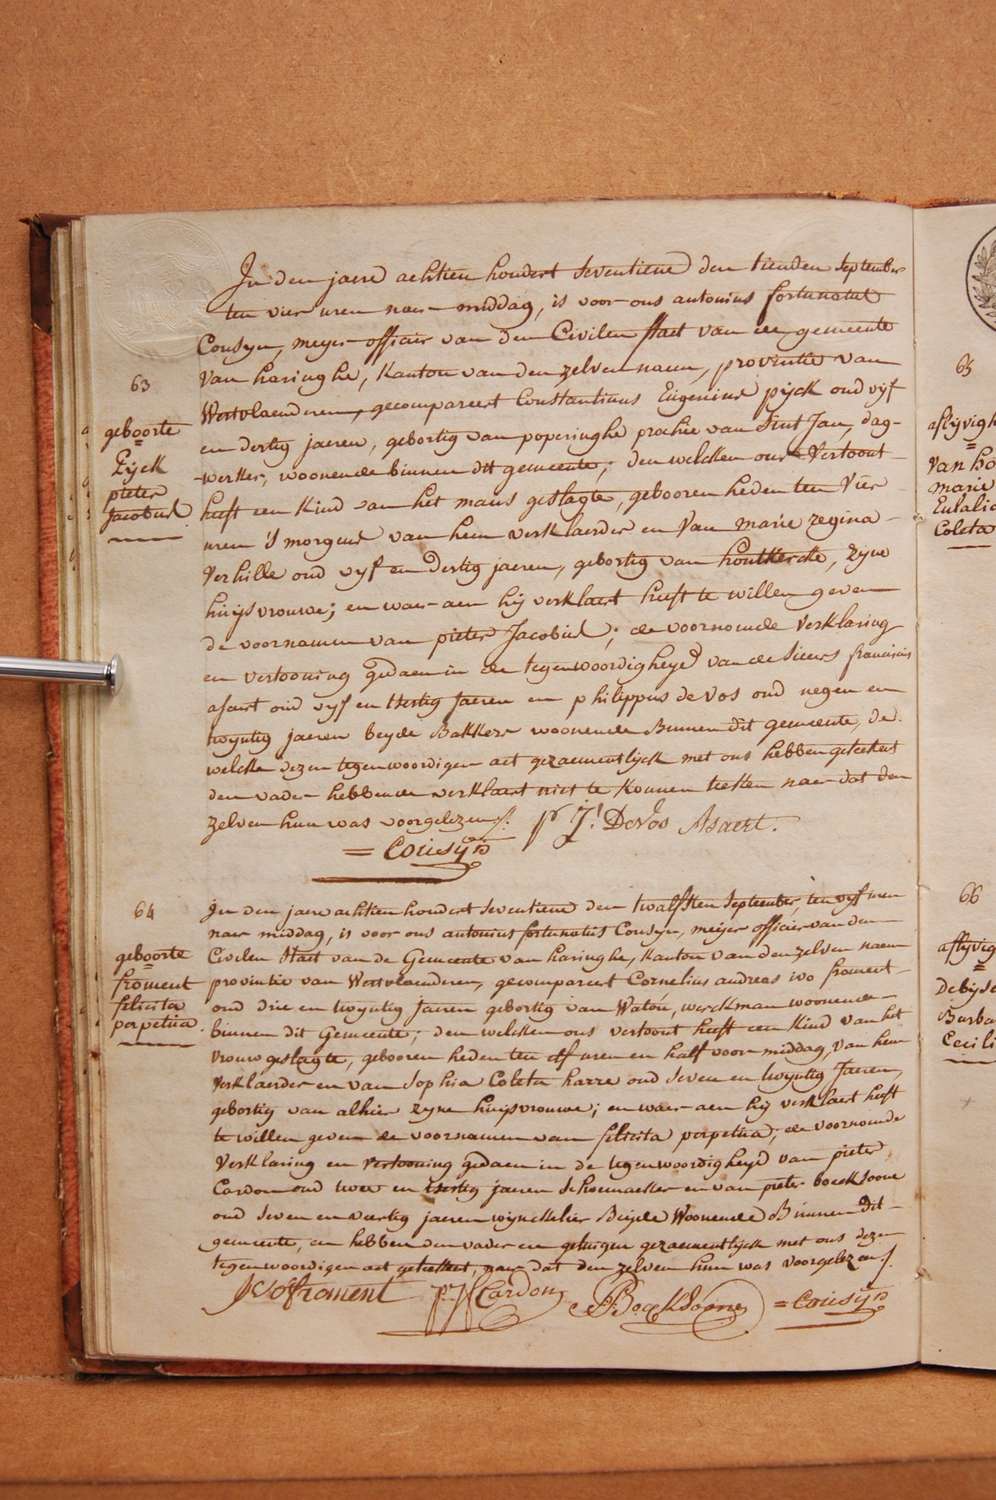 63
geboorte
Pijck
pieter
Jacobus
In den jaere achtien hondert seventiene den tienden September
ten vier uren naer middag, is voor ons antonius fortunatus
Cousyn, meijer officier van den Civilen staet van de gemeente
van haringhe, kanton van den zelven naem, provintie van
Westvlaenderen, gecompareert Constantinus Eugenius pijck oud vijf
en dertig jaeren, gebortig van poperinghe prochie van Sint Jan, dag-
-werker, woonende binnen dit gemeente; den welcken ons vertoont
heeft een kind van het mans geslagte, gebooren heden ten vier
uren 's morgens van hem verklaerder en van marie regina
Verhille oud vijf en dertig jaeren, gebortig van houtkercke, zyne
huijsvrouwe; en waer aen hij verklaert heeft te willen geven
de voornamen van pieter Jacobus; de voornoemde verklaring
en vertooning gedaen in de tegenwoordigheyd van de Sieurs franciscus
asaert oud vijf en dertig Jaeren en philippus de vos oud negen en
twyntig jaeren beyde Bakkers woonende Binnen dit gemeente, de
welcke dezen tegenwoordigen act gezaementlyck met ons hebben geteekent
den vader hebbende verklaert niet te konnen teeken naer dat den
zelven hun was voorgelezen ./.
pr J. DeVos Asaert.
= Cousÿn
64
geboorte
froment
felicita
perpetua.
In den jaere achtien hondert seventiene den twalfsten September, ten vyf uren
naer middag, is voor ons antonius fortunatus Cousyn, meijer officier van den
Civilen Staet van de Gemeente van haringhe, kanton van den zelven naem
provintie van Westvlaenderen, gecompareert Cornelius andreas ivo froment
oud drie en twyntig Jaeren gebortig van Watou, werckman woonende
binnen dit Gemeente; den welcken ons vertoont heeft een kind van het
vrouw geslagte, gebooren heden ten elf uren en half voor middag, van hem
verklaerder en van Sophia Coleta harre oud seven en twyntig Jaeren,
gebortig van alhier zyne huijsvrouwe; en waer aen hij verklaert heeft
te willen geven de voornamen van felicita perpetua; de voornoemde
verklaring en vertooning gedaen in de tegenwoordigheyd van pieter
Cardon oud twee en dertig jaeren Schoenmaeker en van pieter boecksoone
oud seven en veertig jaeren wynckelier Beijde Woonende Binnen dit
gemeente, en hebben den vader en getuigen gezaementlyck met ons dezen
tegenwoordigen act geteekent, naer dat den zelven hun was voorgelezen ./.
froment Cardon Boeksoone = Cousÿn
65
aflyvigh
van ho
marie
Eulalia
Coleta
66
aflyvig
Debyse
Barba
Cecili